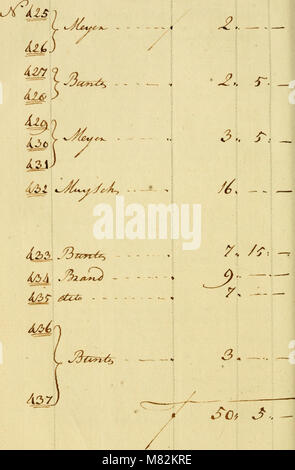 No 425
Meyer - - - - „ 2„ - —
426
427
Bunts - - - - „ 2„ 5„ —
428
429
430 Meyer - - - - „ 3„ 5„ —
431
432 Muysch - - - - „ 16„ - —
433 Bunts - - - - „ 7„ 15„ —
434 Brand - - - - „ 9„ - —
435 dito - - - - „ 7„ - —
436
Bunts - - - - „ 3„ - —
437
50„ 5„ —
alamy
alamy
Image ID: M82KRE
www.alamy.com